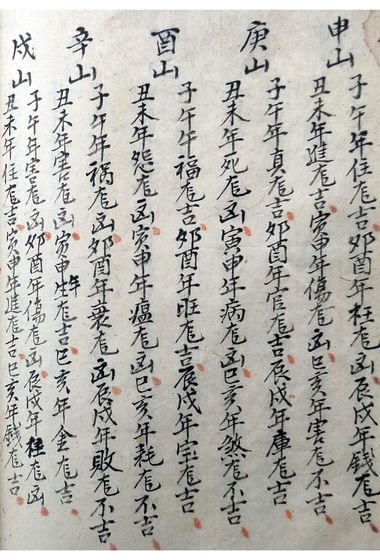 申山
子午年住尨吉卯酉年枉尨凶辰戌年錢尨吉
丑未年進尨吉寅申年傷尨凶巳亥年害尨不吉
庚山
子午年真尨吉卯酉年官尨吉辰戌年庫尨吉
丑未年死尨凶寅申年病尨凶巳亥年煞尨不吉
酉山
子午年福尨吉卯酉年旺尨吉辰戌年宝尨吉
丑未年怨尨凶寅申年瘟尨凶巳亥年耗尨不吉
辛山
子午年祸尨凶卯酉年衰尨凶辰戌年敗尨不吉
丑未年害尨凶寅申年尨吉巳亥年金尨吉
戌山
子午年害尨凶卯酉年傷尨凶辰戌年枉尨凶
丑未年住尨吉寅申年進尨吉巳亥年錢尨吉